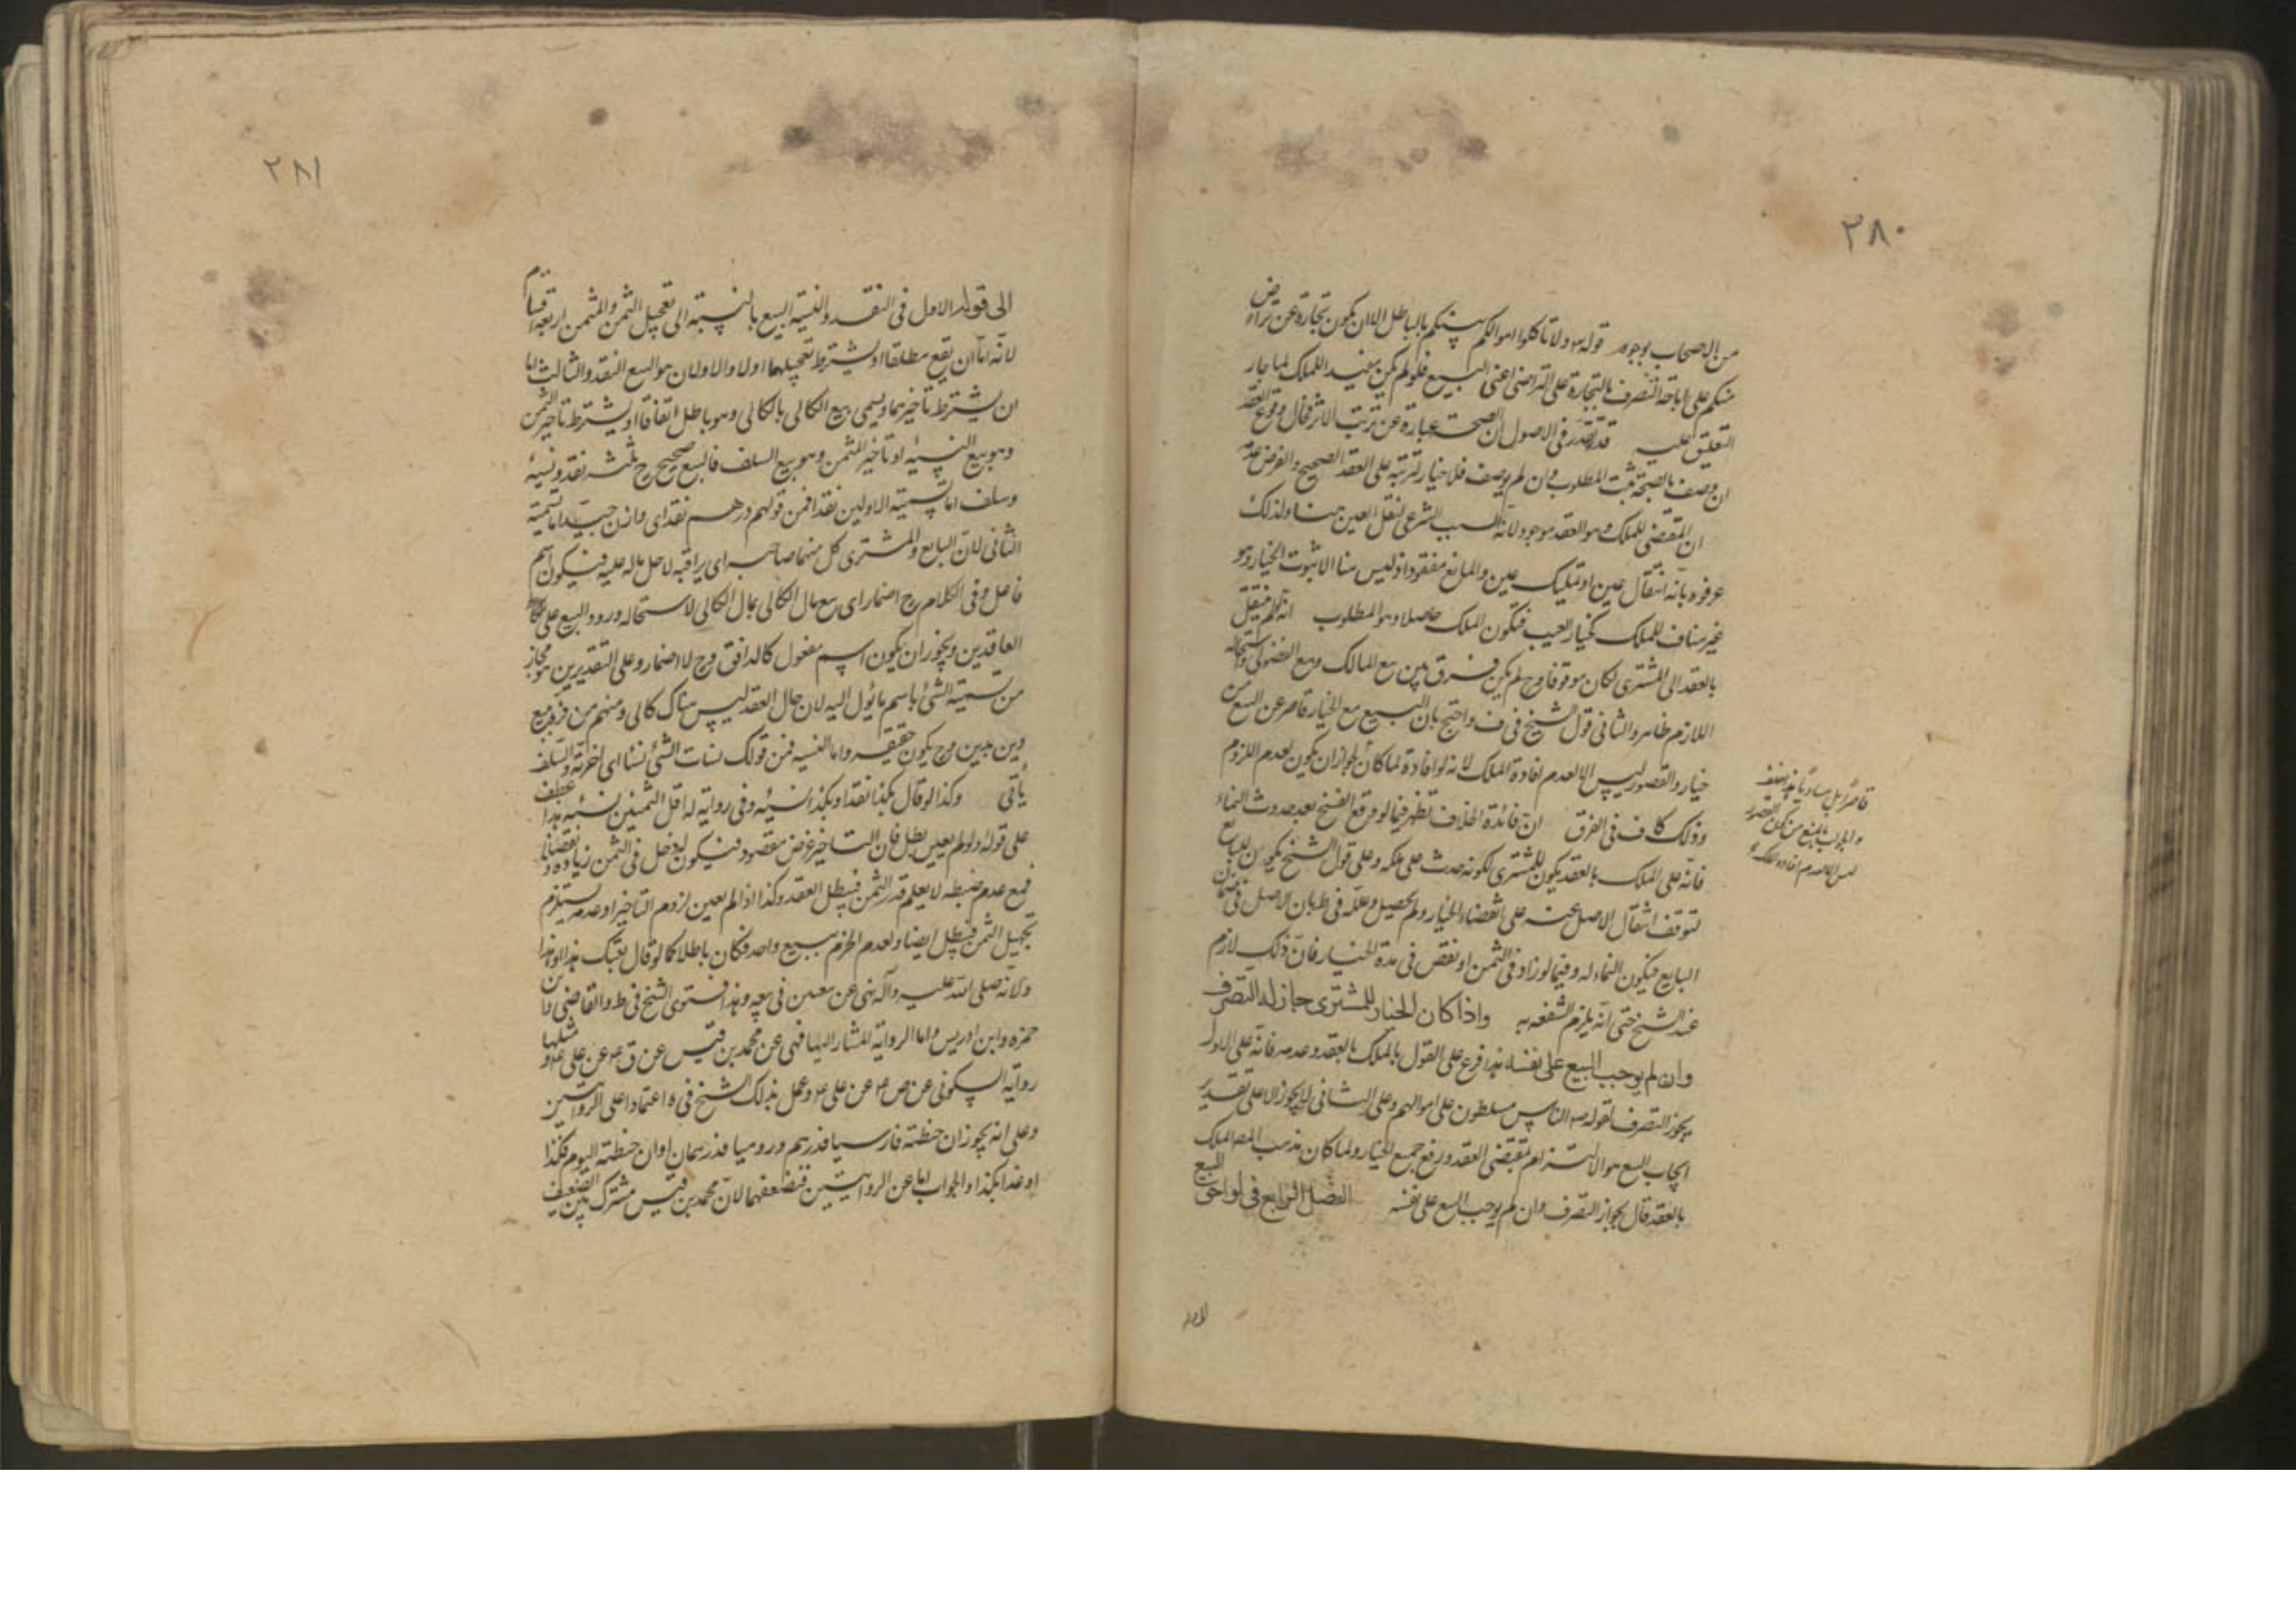 ٢٨٠
من الاصحاب بوجوه قوله تع ولا تاكلوا اموالكم بينكم بالباطل الا ان يكون تجارة عن تراض
منكم على اباحة التصرف بالتجارة على التراضى اعنى البيع فلو لم يكن مفيدا للملك لما جاز
التعليق عليه قد تقرر فى الاصول ان الصحة عبارة عن ترتب الاثر فحال وقوع العقد
ان وصف بالصحة ثبت المطلوب وان لم يوصف فلا خيار لترتبه على العقد الصحيح والفرض عدمه
ان المقتضى للملك وهو العقد موجود لانه السبب الشرعى لنقل العين هنا ولذلك
عرفوه بانه انتقال عين او تمليك عين والمانع مفقود اذ ليس هنا الا ثبوت الخيار وهو
غير مناف للملك كخيار العيب فيكون الملك حاصلا وهو المطلوب انه لو لم ينتقل
بالعقد الى المشترى لكان موقوفا وح لم يكن فرق بين بيع المالك وبيع الفضولى واستحالة
اللازم ظاهر والثانى قول الشيخ فى ف واحتج بان البيع مع الخيار قاصر عن البيع من
خيار والقصور ليس الا لعدم افادة الملك لانه لو افاده لما كان لجواز ان يكون لعدم اللزوم
وذلك كاف فى الفرق ان فائدة الخلاف تظهر فيما لو وقع الفسخ بعد حدوث النماء
فانه على الملك بالعقد يكون للمشترى لكونه حدث على ملكه وعلى قول الشيخ يكون للبايع
لتوقف انتقال الاصل عنه على انقضاء الخيار ولم يحصل وعلله فى ط بان الاصل فى ضمان
البايع فيكون النماء له وفيما لو زاد فى الثمن او نقص فى مدة الخيار فان ذلك لازم
عند الشيخ حتى انه يلزم الشفعه به واذا كان الخيار للمشترى جاز له التصرف
وان لم يوجب البيع على نفسه هذا فرع على القول بالملك بالعقد وعدمه فانه على الاول
يجوز التصرف لقوله ص الناس مسلطون على اموالهم وعلى الثانى لا يجوز الا على تقدير
ايجاب البيع هو الالتزام بمقتضى العقد ورفع جميع الخيار ولما كان مذهب المص الملك
بالعقد قال بجواز التصرف وان لم يوجب البيع على نفسه الفصل الرابع فى لواحق البيع
والجواب بالمنع من كون القصور
ليس الا لعدم افادة الملك
٢٨١
الى قوله الاول فى النقد والنسيئة البيع بالنسبة الى تعجيل الثمن والمثمن اربعة اقسام
لانه اما ان يقع مطلقا او يشترط تعجيلهما اولا والاولان هو البيع النقد والثالث اما
ان يشترط تاخيرهما ويسمى بيع الكالى بالكالى وهو باطل اتفاقا او يشترط تاخير الثمن
وهو بيع النسيئه او تاخير المثمن وهو بيع السلف فالبيع صحيح ح ثلثه نقد ونسيئه
وسلف اما تسمية الاولين نقدا فمن قولهم درهم نقد اى وازن جيد اما تسمية
الثانى لان البايع والمشترى كل منهما صاحبه اى يراقبه لاجل ماله عليه فيكون اسم
فاعل وفى الكلام ح اضمار اى بيع مال الكالى بمال الكالى لاستحاله ورود البيع على
العاقدين ويجوز ان يكون اسم مفعول كالدافق وح لا اضمار وعلى التقديرين هو مجاز
من تسمية الشئ باسم ما يؤل اليه لان حال العقد ليس هناك كالى ومنهم من فسره ببيع
دين بدين وح يكون حقيقه واما النسيه فمن قولك نسات الشئ نسئا اى اخرته والسلف
ياتى وكذا لو قال بكذا نقدا وبكذا نسيئه وفى رواية له اقل الثمنين نسيئه هذا عطف
على قوله ولو لم يعين بطل فان التاخير غرض مقصود فيكون له دخل فى الثمن زيادة ونقصانا
فمع عدم ضبطه لا يعلم قدر الثمن فيبطل العقد وكذا اذا لم يعين لزوم التاخير او عدمه يستلزم
تجهيل الثمن فيبطل ايضا ولعدم الجزم ببيع واحد فكان باطلا كما لو قال بعتك هذا او هذا
ولانه صلى الله عليه وآله نهى عن بيعين فى بيعه وهذا فتوى الشيخ فى ط والقاضى وابن
حمزه وابن ادريس واما الرواية المشار اليها فهى عن محمد بن قيس عن ق ع عن على ع ومثلها
رواية السكونى عن ص ع عن على ع وعمل بذلك الشيخ فى ه اعتمادا على الروايتين
وعلى انه يجوز ان خطته فارسيا فدرهم وروميا فدرهمان او ان خطته اليوم فكذا
او غدا فكذا والجواب اما عن الروايتين فنضعفهما لان محمد بن قيس مشترك بين الضعيف
الاول